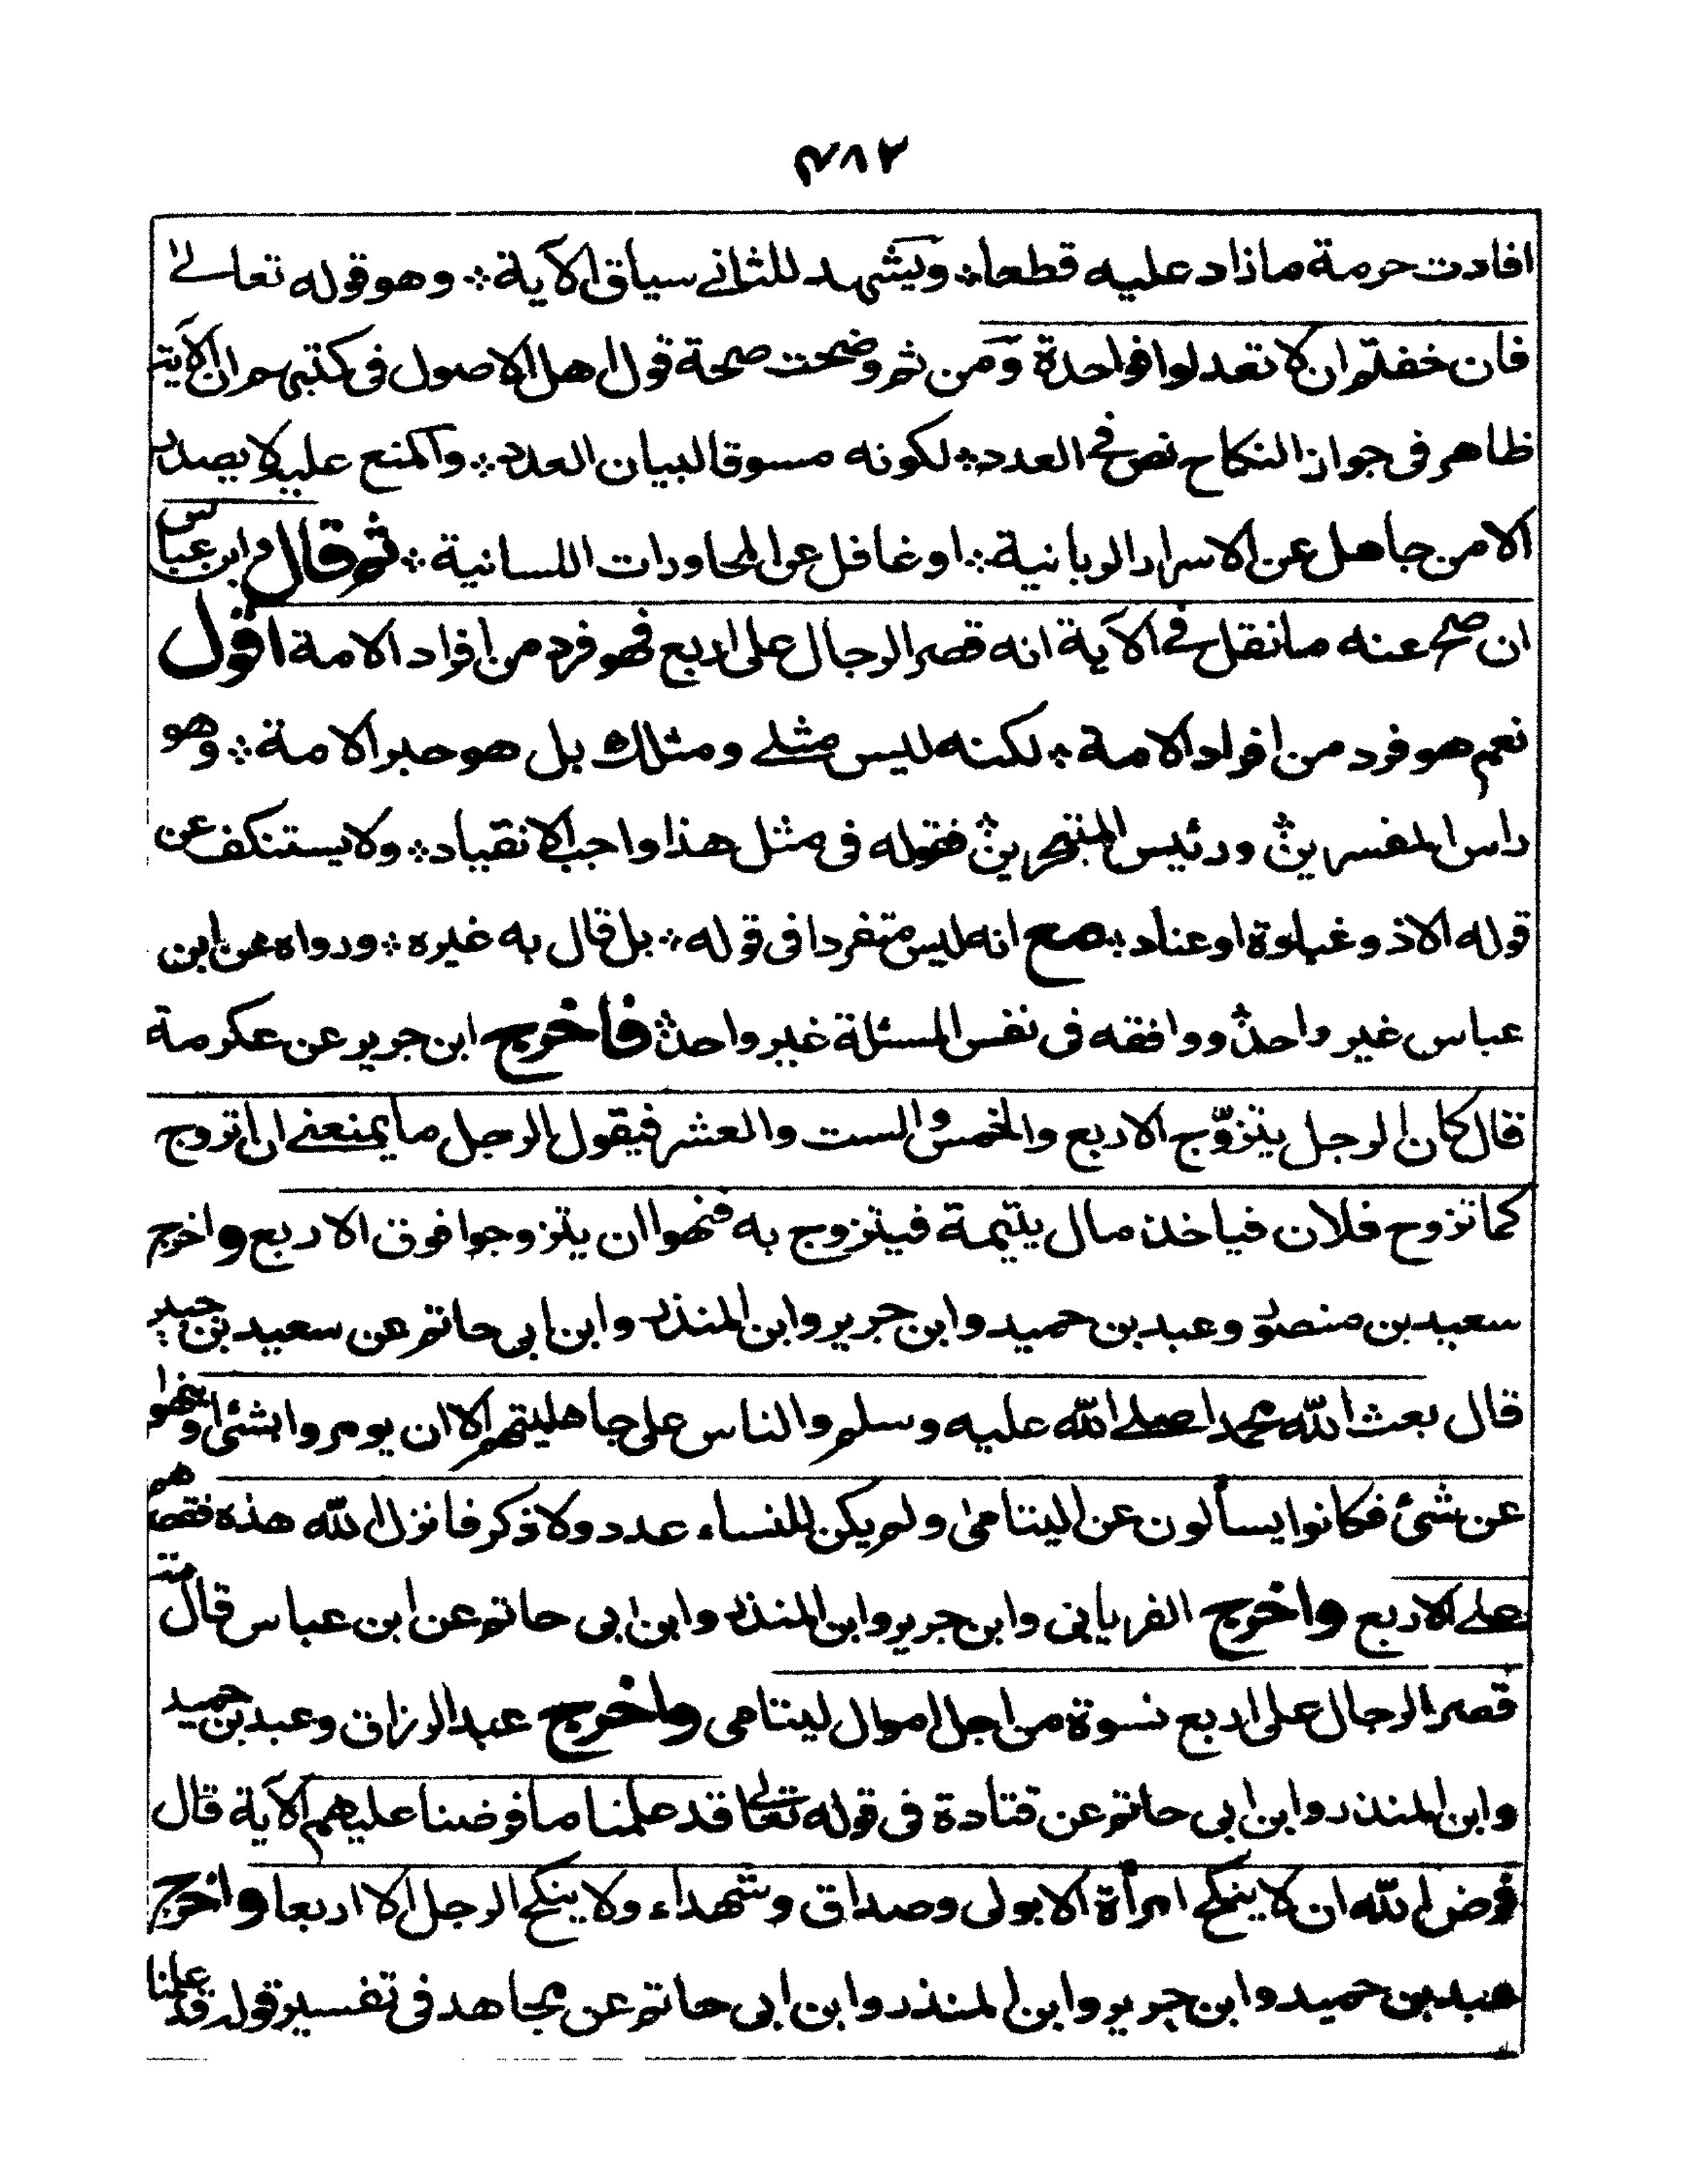 ٢٨٣
افادت حرمة مازاد عليه قطعا؞ ويشهد للثانے سياق الآية؞ وهو قوله تعالےٰ
فان خفتم ان لا تعدلوا فواحدة ومن ثم وضحت صحة قول اهل الاصول فى كتبهم ان الآية
ظاهر فى جواز النكاح نص فے العدد؞ لكونه مسوقا لبيان العدد؞ والمنع عليه لا يصدر
الا من جاهل عن الاسرار الربانية؞ او غافل عن المحاورات اللسانية؞ ثم قال وابن عباس
ان صح عنه ما نقل فے الآية انه قصر الرجال على اربع فهو فرد من افراد الامة اقول
نعم هو فرد من افراد الامة؞ لكنه ليس مثلے ومثلك بل هو حبر الامة؞ وهو
راس المفسرين؞ ورئيس المتبحرين؞ فقوله فى مثل هذا واجب الانقياد؞ ولا يستنكف عن
قوله الا ذو غباوة او عناد؞ مع انه ليس متفردا فى قوله؞ بل قال به غيره؞ ورواه عن ابن
عباس غير واحد؞ ووافقه فى نفس المسئلة غير واحد؞ فاخرج ابن جرير عن عكرمة
قال كان الرجل يتزوّج الاربع والخمس والست والعشر فيقول الرجل ما يمنعنے ان اتزوج
كما تزوج فلان فياخذ مال يتيمة فيتزوج به فنهوا ان يتزوجوا فوق الاربع واخرج
سعيد بن منصور وعبد بن حميد وابن جرير وابن المنذر وابن ابى حاتم عن سعيد بن جبير
قال بعث الله محمدا صلے الله عليه وسلم والناس على جاهليتهم الا ان يومروا بشئ او ينهوا
عن شئ فكانوا يسألون عن اليتامىٰ ولم يكن للنساء عدد ولا ذكر فانزل الله هذه فقصرهم
علے الاربع واخرج الفريابى وابن جرير وابن المنذر وابن ابى حاتم عن ابن عباس قال
قصر الرجال على اربع نسوة من اجل اموال ليتامى واخرج عبد الرزاق وعبد بن حميد
وابن المنذر وابن ابى حاتم عن قتادة فى قوله تعالےٰ قد علمنا ما فرضنا عليهم الآية قال
فرض الله ان لا ينكح امرأة الا بولى وصداق وشهداء ولا ينكح الرجل الا اربعا واخرج
عبد بن حميد وابن جرير وابن المنذر وابن ابى حاتم عن مجاهد فى تفسير قوله قد علمنا